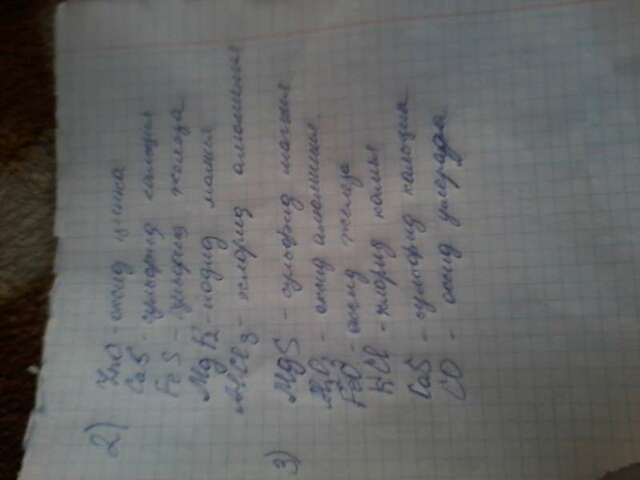 2) ZnO - оксид цинка
CaS - сульфид кальция
FeS - сульфид железа
MgI2 - иодид магния
AlCl3 - хлорид алюминия
3) MgS - сульфид магния
Al2O3 - оксид алюминия
FeO - оксид железа
KCl - хлорид калия
CaS - сульфид кальция
CO - оксид углерода